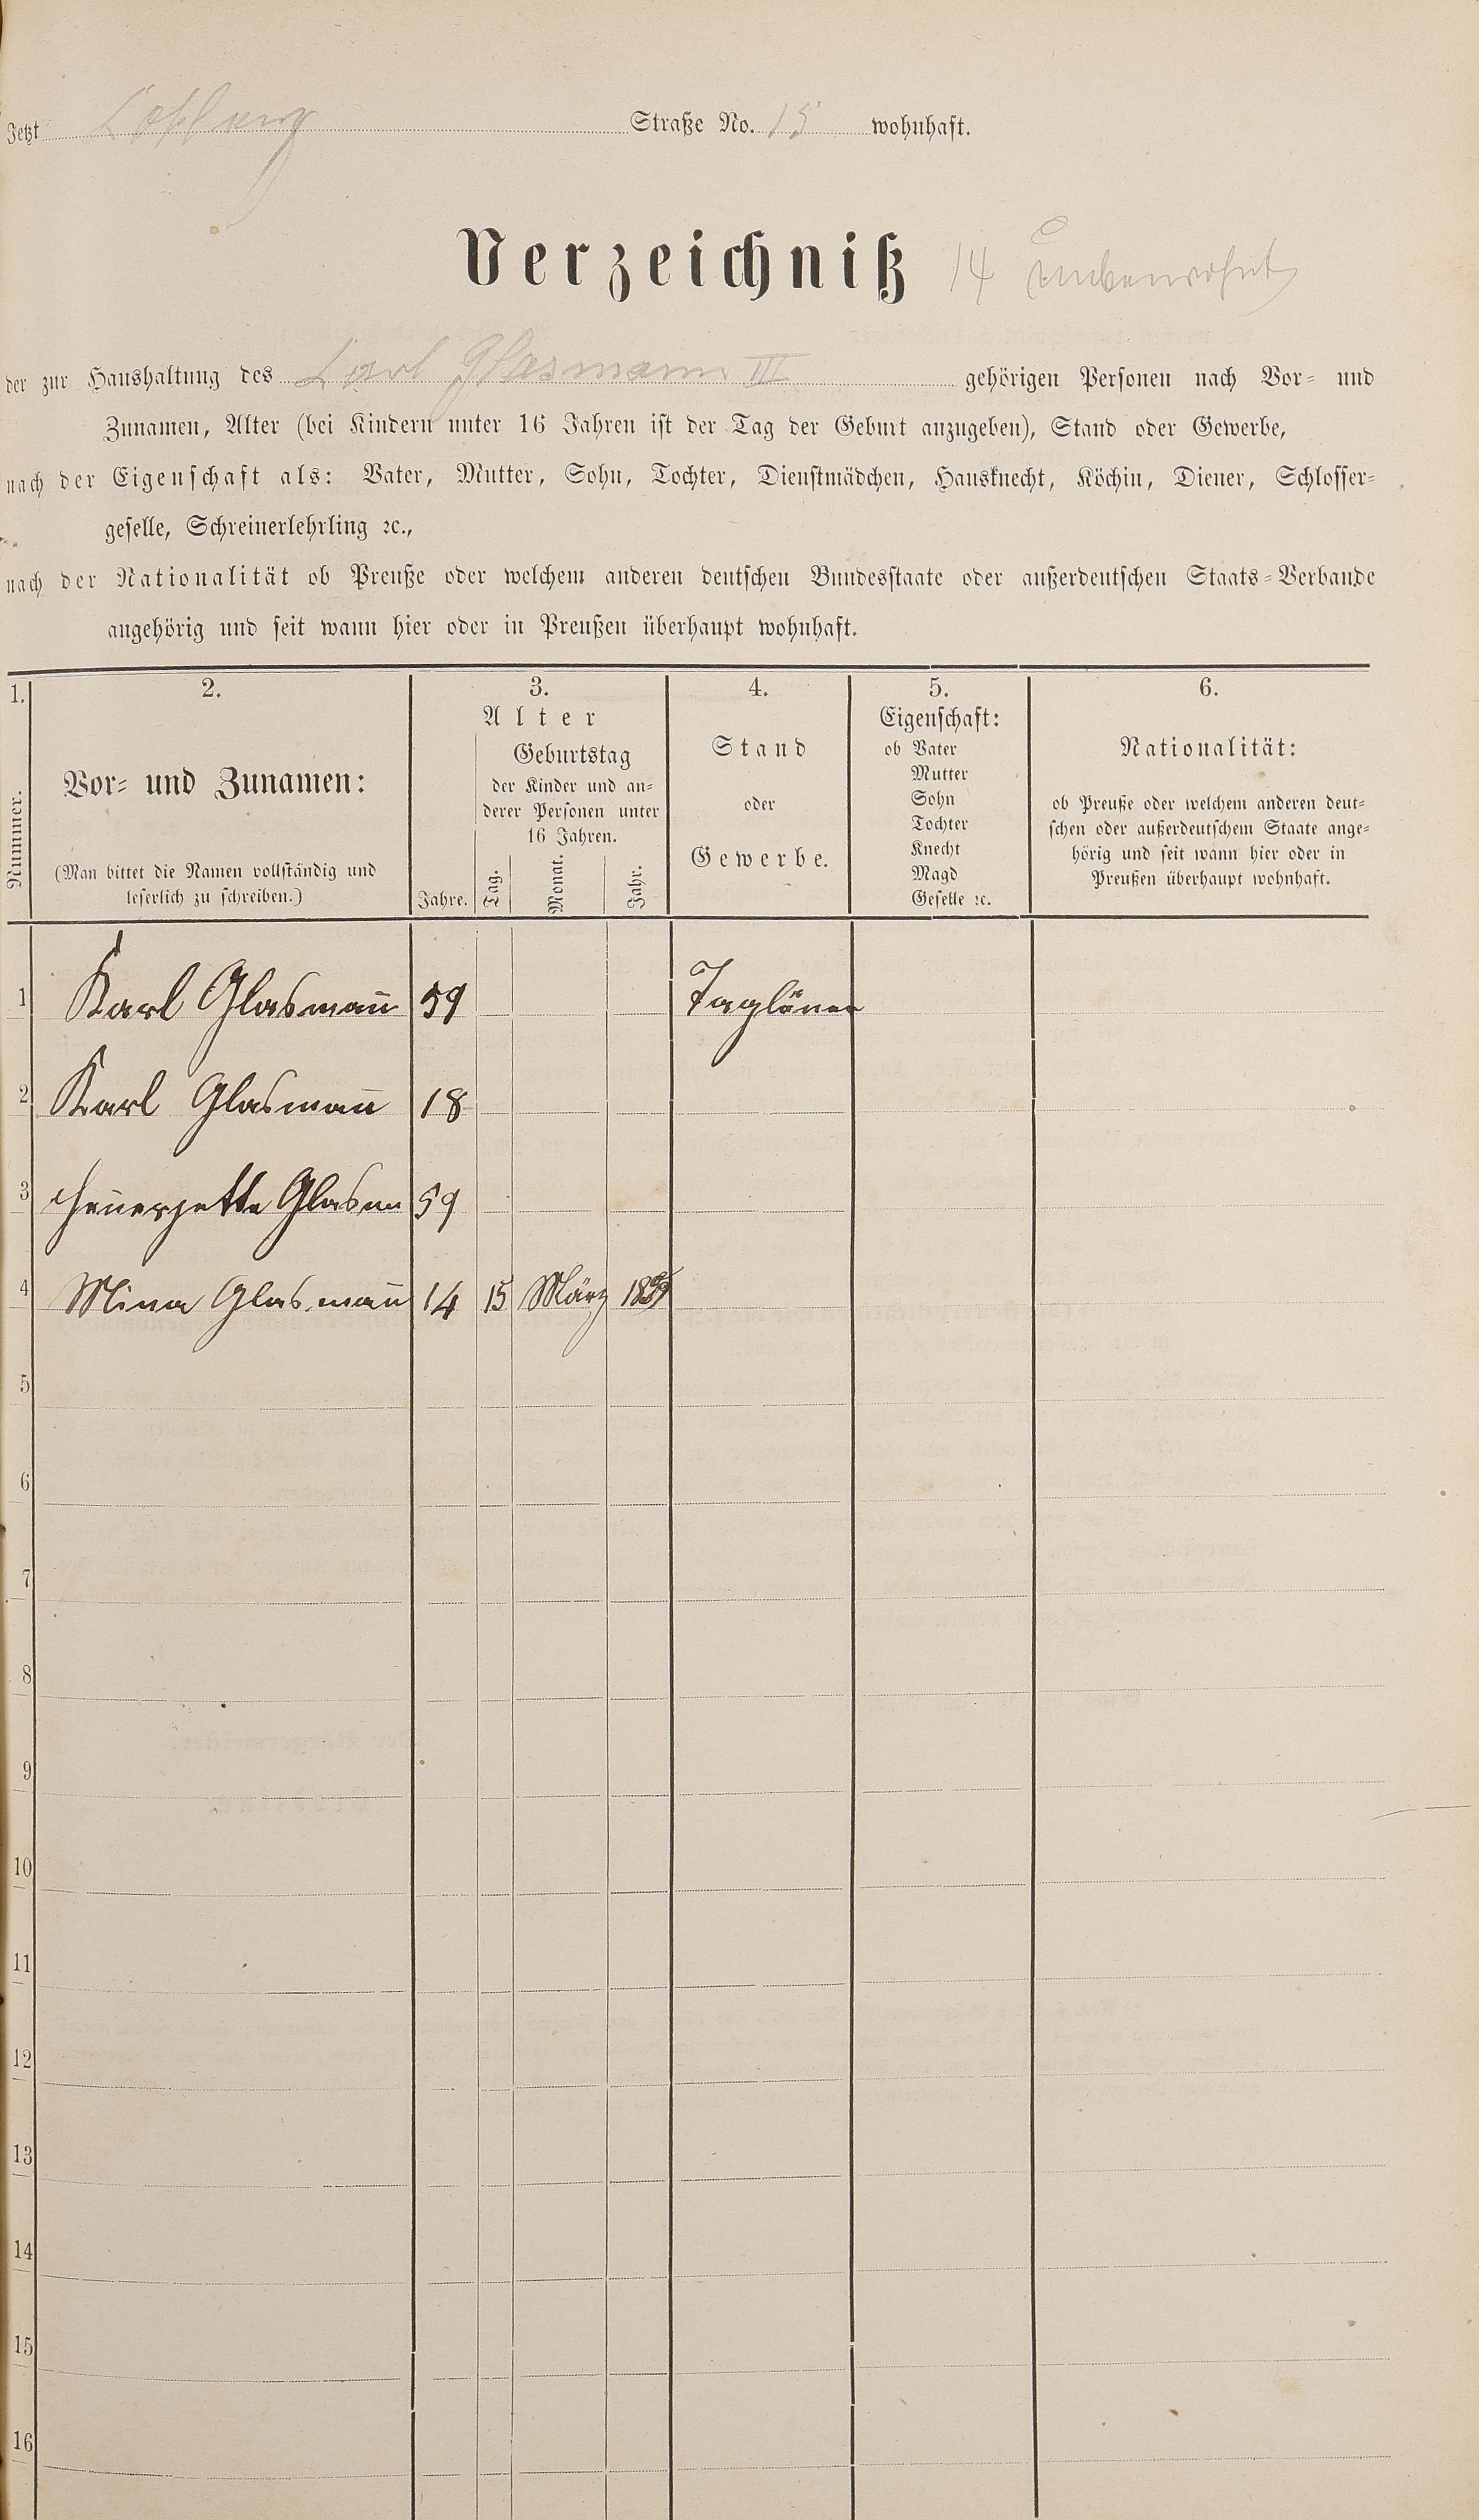 Jetzt Straße No. 15 wohnhaft.
Verzeichniß 14 unbewohnt
der zur Haushaltung des Karl Glasmann III gehörigen Personen nach Vor- und
Zunamen, Alter (bei Kindern unter 16 Jahren ist der Tag der Geburt anzugeben), Stand oder Gewerbe,
nach der Eigenschaft als: Vater, Mutter, Sohn, Tochter, Dienstmädchen, Hausknecht, Köchin, Diener, Schlosser-
geselle, Schreinerlehrling ꝛc.,
nach der Nationalität ob Preuße oder welchem anderen deutschen Bundesstaate oder außerdeutschen Staats-Verbande
angehörig und seit wann hier oder in Preußen überhaupt wohnhaft.
1. 2. 3. 4. 5. 6.
Nummer.
Vor- und Zunamen:
(Man bittet die Namen vollständig und
leserlich zu schreiben.)
Alter
Geburtstag
der Kinder und an-
derer Personen unter
16 Jahren.
Jahre. Tag. Monat. Jahr.
Stand
oder
Gewerbe.
Eigenschaft:
ob Vater
Mutter
Sohn
Tochter
Knecht
Magd
Geselle ꝛc.
Nationalität:
ob Preuße oder welchem anderen deut-
schen oder außerdeutschem Staate ange-
hörig und seit wann hier oder in
Preußen überhaupt wohnhaft.
1 Karl Glasman̄ 59 Taglöner
2 Karl Glasman̄ 18
3 Glasm 59
4 Mina Glasman̄ 14 15 März
5
6
7
8
9
10
11
12
13
14
15
16